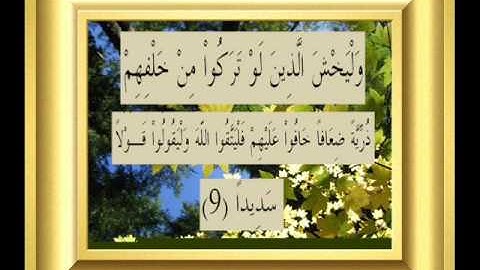 وَلْيَخْشَ الَّذِينَ لَوْ تَرَكُواْ مِنْ خَلْفِهِمْ
ذُرِّيَّةً ضِعَافًا خَافُواْ عَلَيْهِمْ فَلْيَتَّقُوا اللَّهَ وَلْيَقُولُواْ قَــوْلاً
سَدِيداً (9)